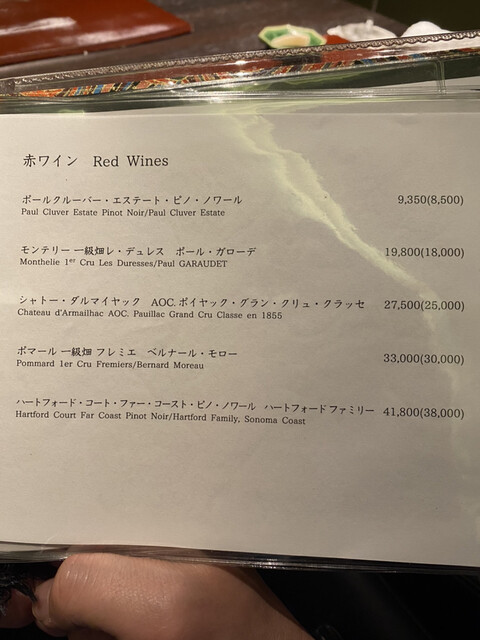 赤ワイン Red Wines
ポールクルーバー・エステート・ピノ・ノワール 9,350(8,500)
Paul Cluver Estate Pinot Noir/Paul Cluver Estate
モンテリー 一級畑レ・デュレス ポール・ガローデ 19,800(18,000)
Monthelie 1er Cru Les Duresses/Paul GARAUDET
シャトー・ダルマイヤック AOC.ポイヤック・グラン・クリュ・クラッセ 27,500(25,000)
Chateau d'Armailhac AOC. Pauillac Grand Cru Classe en 1855
ポマール 一級畑 フレミエ ベルナール・モロー 33,000(30,000)
Pommard 1er Cru Fremiers/Bernard Moreau
ハートフォード・コート・ファー・コースト・ピノ・ノワール ハートフォード ファミリー 41,800(38,000)
Hartford Court Far Coast Pinot Noir/Hartford Family, Sonoma Coast